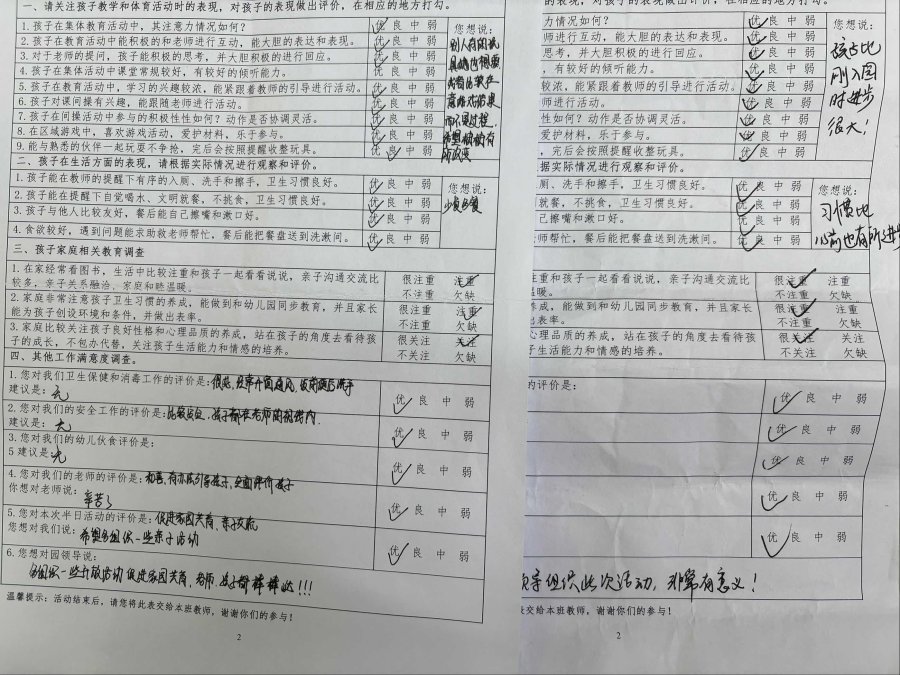 一、请关注孩子教学和体育活动时的表现，对孩子的表现做出评价，在相应的地方打勾。
1.孩子在集体教育活动中，其注意力情况如何？ 优 良 中 弱
2.孩子在教育活动中能积极的和老师进行互动，能大胆的表达和表现。 优 良 中 弱
3.对于老师的提问，孩子能积极的思考，并大胆积极的进行回应。 优 良 中 弱
4.孩子在集体活动中课堂常规较好，有较好的倾听能力。 优 良 中 弱
5.孩子在教育活动中，学习的兴趣较浓，能紧跟着教师的引导进行活动。 优 良 中 弱
6.孩子对课间操有兴趣，能跟随老师进行活动。 优 良 中 弱
7.孩子在间操活动中参与的积极性性如何？动作是否协调灵活。 优 良 中 弱
8.在区域游戏中，喜欢游戏活动，爱护材料，乐于参与。 优 良 中 弱
9.能与熟悉的伙伴一起玩耍不争抢，完后会按照提醒收整玩具。 优 良 中 弱
您想说：
而不是过程，
希望能够有
所改变
二、孩子在生活方面的表现，请根据实际情况进行观察和评价。
1.孩子能在教师的提醒下有序的入厕、洗手和擦手，卫生习惯良好。 优 良 中 弱
2.孩子能在提醒下自觉喝水、文明就餐，不挑食，卫生习惯良好。 优 良 中 弱
3.孩子与他人比较友好，餐后能自己擦嘴和漱口好。 优 良 中 弱
4.食欲较好，遇到问题能求助教师帮忙，餐后能把餐盘送到洗漱间。 优 良 中 弱
您想说：
少食多餐
三、孩子家庭相关教育调查
1.在家经常看图书，生活中比较注重和孩子一起看看说说，亲子沟通交流比 很注重 注重
较多，亲子关系融洽，家庭和睦温暖。 不注重 欠缺
2.家庭非常注意孩子卫生习惯的养成，能做到和幼儿园同步教育，并且家长 很注重 注重
能为孩子创设环境和条件，并做出表率。 不注重 欠缺
3.家庭比较关注孩子良好性格和心理品质的养成，站在孩子的角度去看待孩 很关注 关注
子的成长，不包办代替，关注孩子生活能力和情感的培养。 不关注 欠缺
四、其他工作满意度调查。
1.您对我们卫生保健和消毒工作的评价是：很好，经常开窗通风，饭前便后洗手
建议是：无 优 良 中 弱
2.您对我们的安全工作的评价是：比较安全，孩子都在老师的视线内．
建议是：无 优 良 中 弱
3.您对我们的幼儿伙食评价是：
5建议是：无 优 良 中 弱
4.您对我们的老师的评价是：和善，有办法引导孩子，全面评价孩子
你想对老师说：辛苦了 优 良 中 弱
5.您对本次半日活动的评价是：促进家园共育、亲子交流
您想对我们说：希望多组织一些亲子活动 优 良 中 弱
6.您想对园领导说：
多组织一些开放活动促进家园共育，老师、孩子都棒棒哒！！！
温馨提示：活动结束后，请您将此表交给本班教师，谢谢你们的参与！
2
的表现，对孩子的表现做出评价，在相应的地方打勾。
力情况如何？ 优 良 中 弱
师进行互动，能大胆的表达和表现。 优 良 中 弱
思考，并大胆积极的进行回应。 优 良 中 弱
，有较好的倾听能力。 优 良 中 弱
较浓，能紧跟着教师的引导进行活动。 优 良 中 弱
师进行活动。 优 良 中 弱
性如何？动作是否协调灵活。 优 良 中 弱
爱护材料，乐于参与。 优 良 中 弱
，完后会按照提醒收整玩具。 优 良 中 弱
您想说：
孩占比
刚入园
时进步
很大！
据实际情况进行观察和评价。
厕、洗手和擦手，卫生习惯良好。 优 良 中 弱
就餐，不挑食，卫生习惯良好。 优 良 中 弱
己擦嘴和漱口好。 优 良 中 弱
师帮忙，餐后能把餐盘送到洗漱间。 优 良 中 弱
您想说：
习惯比
以前也有所进步
注重和孩子一起看看说说，亲子沟通交流比 很注重 注重
温暖。 不注重 欠缺
养成，能做到和幼儿园同步教育，并且家长 很注重 注重
出表率。 不注重 欠缺
心理品质的养成，站在孩子的角度去看待孩 很关注 关注
子生活能力和情感的培养。 不关注 欠缺
的评价是： 优 良 中 弱
优 良 中 弱
优 良 中 弱
优 良 中 弱
优 良 中 弱
领导组织此次活动，非常有意义！
表交给本班教师，谢谢你们的参与！
2